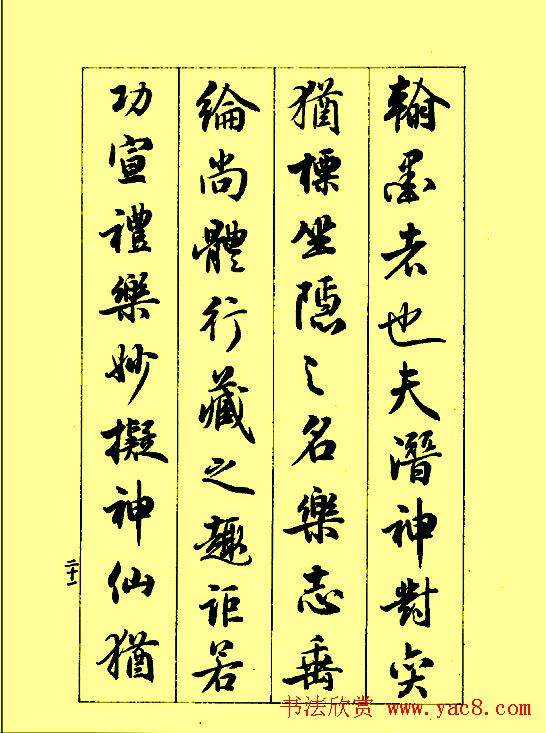 翰墨者也夫潛神對奕
猶標坐隱之名樂志垂
綸尚體行藏之趣詎若
功宣禮樂妙擬神仙猶
二十一
书法欣赏 www.yac8.com